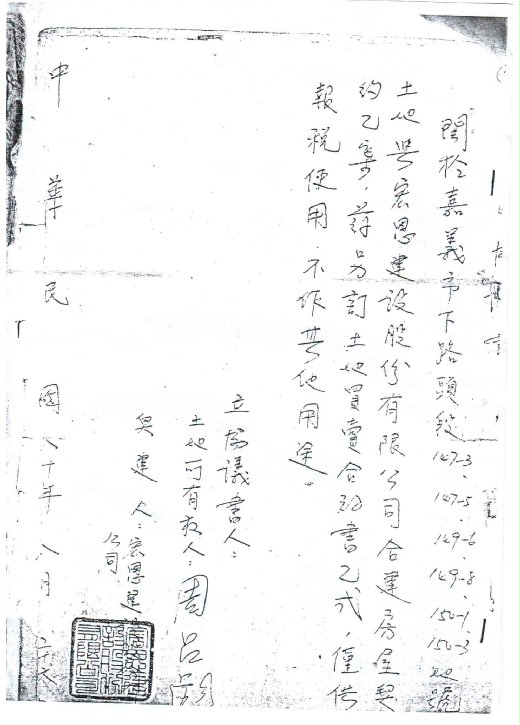 協議書
關於嘉義市下路頭段147-3、147-5、149-6、149-8、150-1、150-3地號
土地與宏恩建設股份有限公司合建房屋契
約乙案，茲另訂土地買賣合約書乙式，僅供
報稅使用，不作其他用途。
立協議書人：
土地所有權人：周呂
與建人：宏恩建
公司
中華民國八十年八月